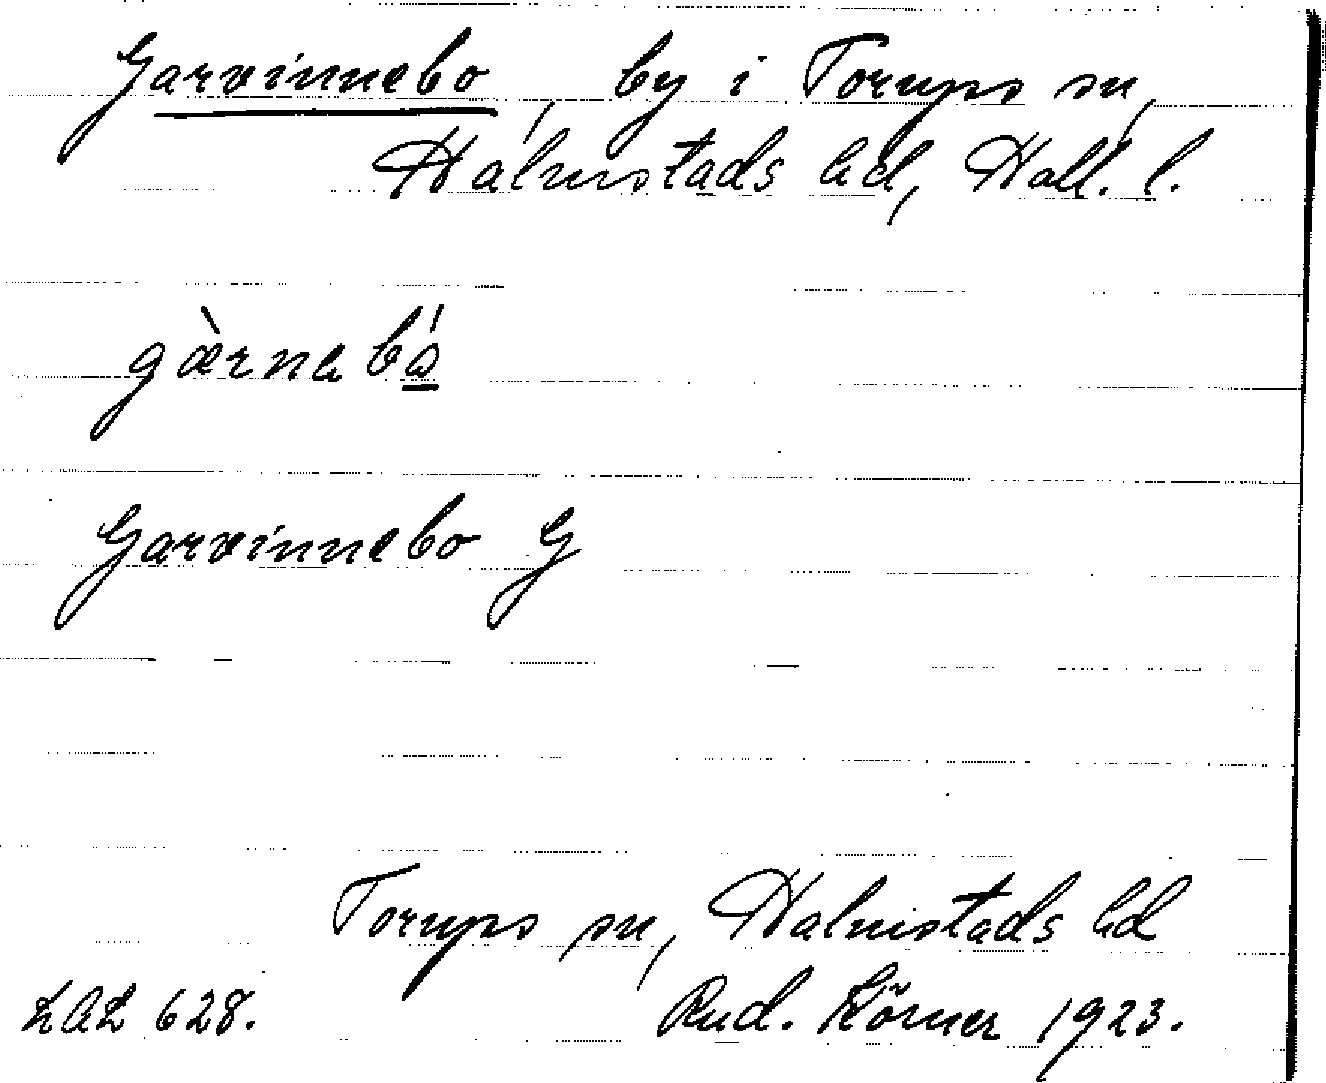 Garvinnebo, by i Torups sn,
Halmstads hd, Hall. l.
gàrnabó
Garvinnebo G
Torups sn, Halmstads hd
LAL 628.
Rud. Körner 1923.